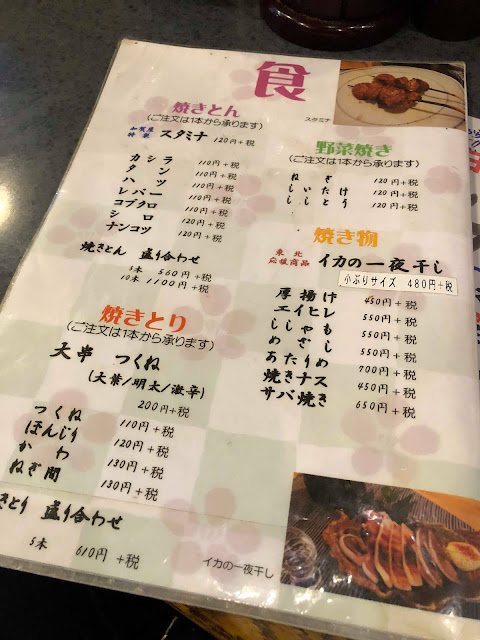 食
スタミナ
焼きとん
(ご注文は1本から承ります)
加賀屋特製 スタミナ 120円+税
カシラ 110円+税
タン 110円+税
ハツ 110円+税
レバー 110円+税
コブクロ 110円+税
シロ 120円+税
ナンコツ 120円+税
焼きとん 盛り合わせ
5本 560円+税
10本 1100円+税
焼きとり
(ご注文は1本から承ります)
大串 つくね
(大葉/明太/激辛)
200円+税
つくね 110円+税
ぼんじり 120円+税
かわ 130円+税
ねぎ間 130円+税
きとり 盛り合わせ
5本 610円+税
野菜焼き
(ご注文は1本から承ります)
ねぎ 120円+税
しいたけ 120円+税
ししとう 120円+税
焼き物
東北応援商品 イカの一夜干し
小ぶりサイズ 480円+税
厚揚げ 450円+税
エイヒレ 550円+税
ししゃも 550円+税
めざし 550円+税
あたりめ 700円+税
焼きナス 450円+税
サバ焼き 650円+税
イカの一夜干し